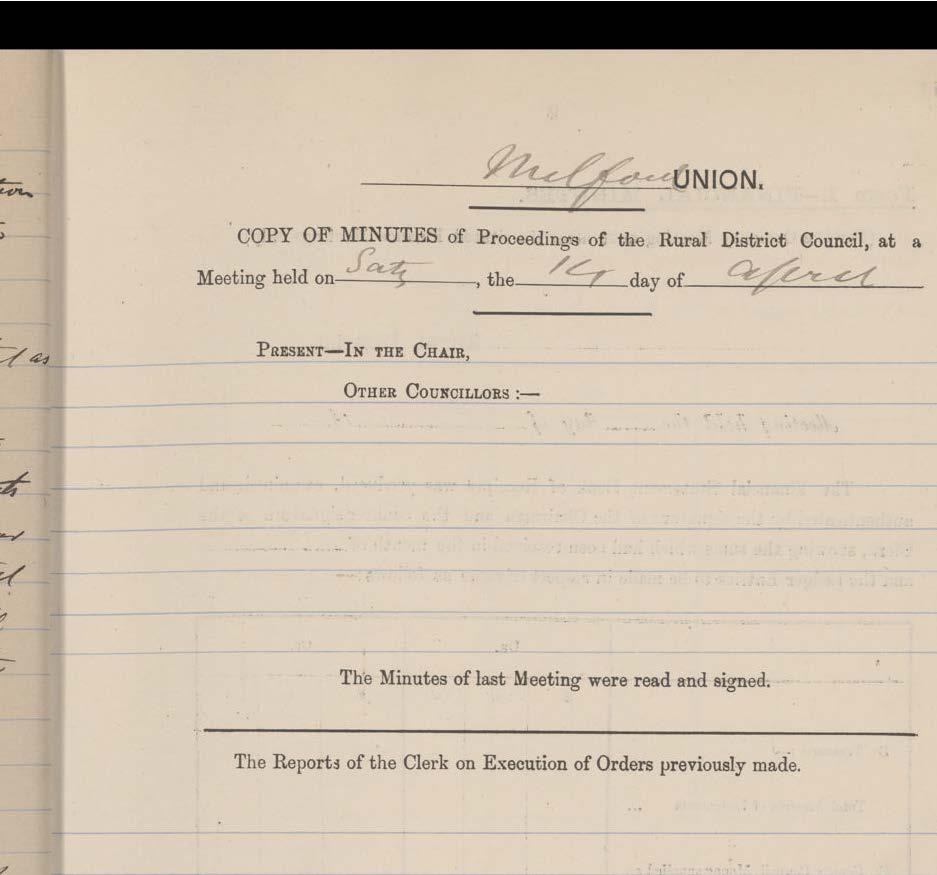 Milford UNION.
COPY OF MINUTES of Proceedings of the Rural District Council, at a
Meeting held on Saty, the day of April
PRESENT—IN THE CHAIR,
OTHER COUNCILLORS :—
The Minutes of last Meeting were read and signed.
The Reports of the Clerk on Execution of Orders previously made.